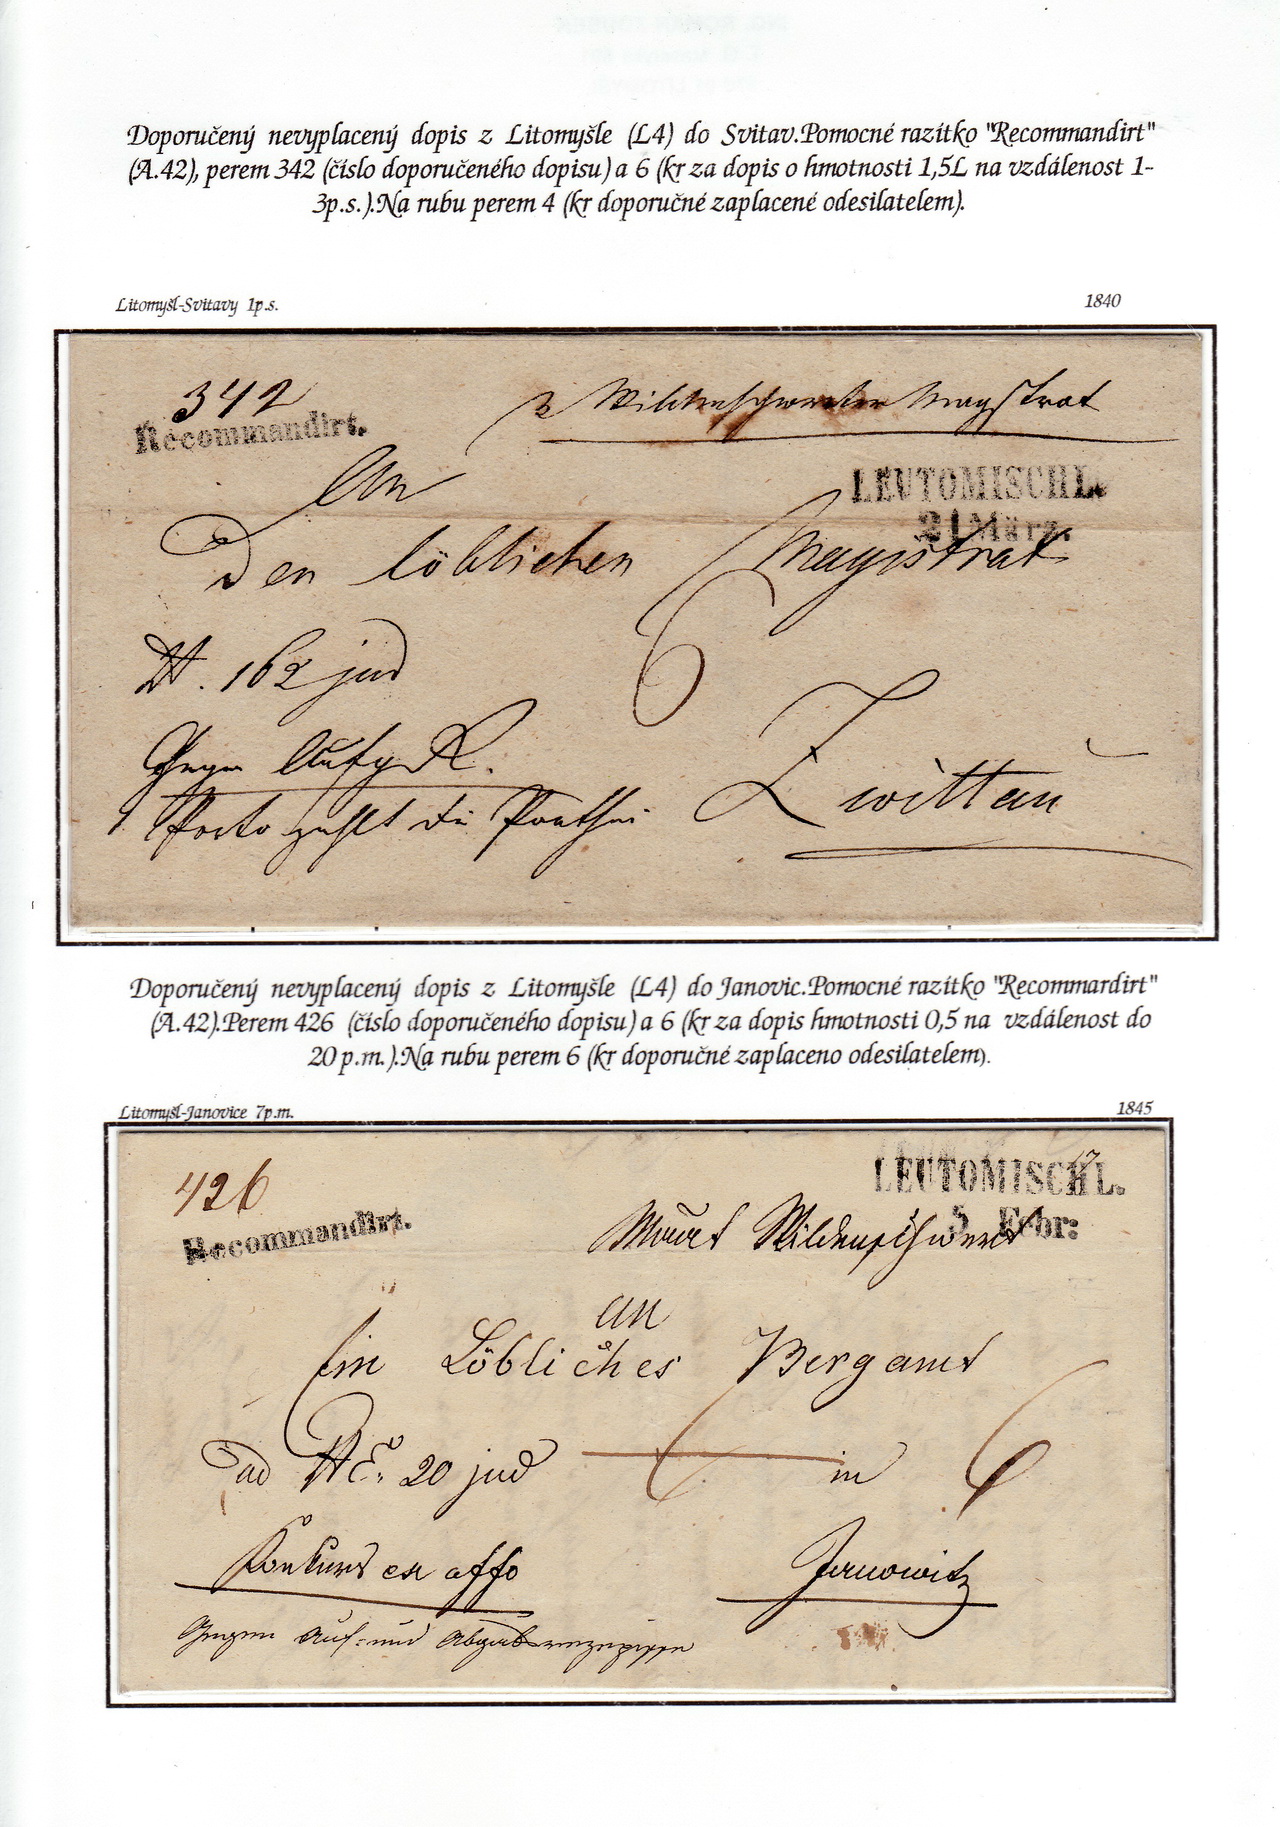 Doporučený nevyplacený dopis z Litomyšle (L4) do Svitav.Pomocné razítko "Recommandirt"
(A.42), perem 342 (číslo doporučeného dopisu) a 6 (kr za dopis o hmotnosti 1,5L na vzdálenost 1-
3p.s.).Na rubu perem 4 (kr doporučné zaplacené odesilatelem).
Litomyšl-Svitavy 1p.s.
1840
342
Recommandirt.
Magistrat
LEUTOMISCHL.
21 März.
An
Den löblichen Magistrat
6
162 jud
Zwittau
Porto zahlt die
Doporučený nevyplacený dopis z Litomyšle (L4) do Janovic.Pomocné razítko "Recommardirt"
(A.42).Perem 426 (číslo doporučeného dopisu) a 6 (kr za dopis hmotnosti 0,5 na vzdálenost do
20 p.m.).Na rubu perem 6 (kr doporučné zaplaceno odesilatelem).
Litomyšl-Janovice 7p.m.
1845
426
LEUTOMISCHL.
5 Febr:
Recommandirt.
Wildenschwert
an
Ein Löbliches Bergamt
ad 20 jud
in
6
Konkurs ex offo
Janowitz
Gegen Auf- und